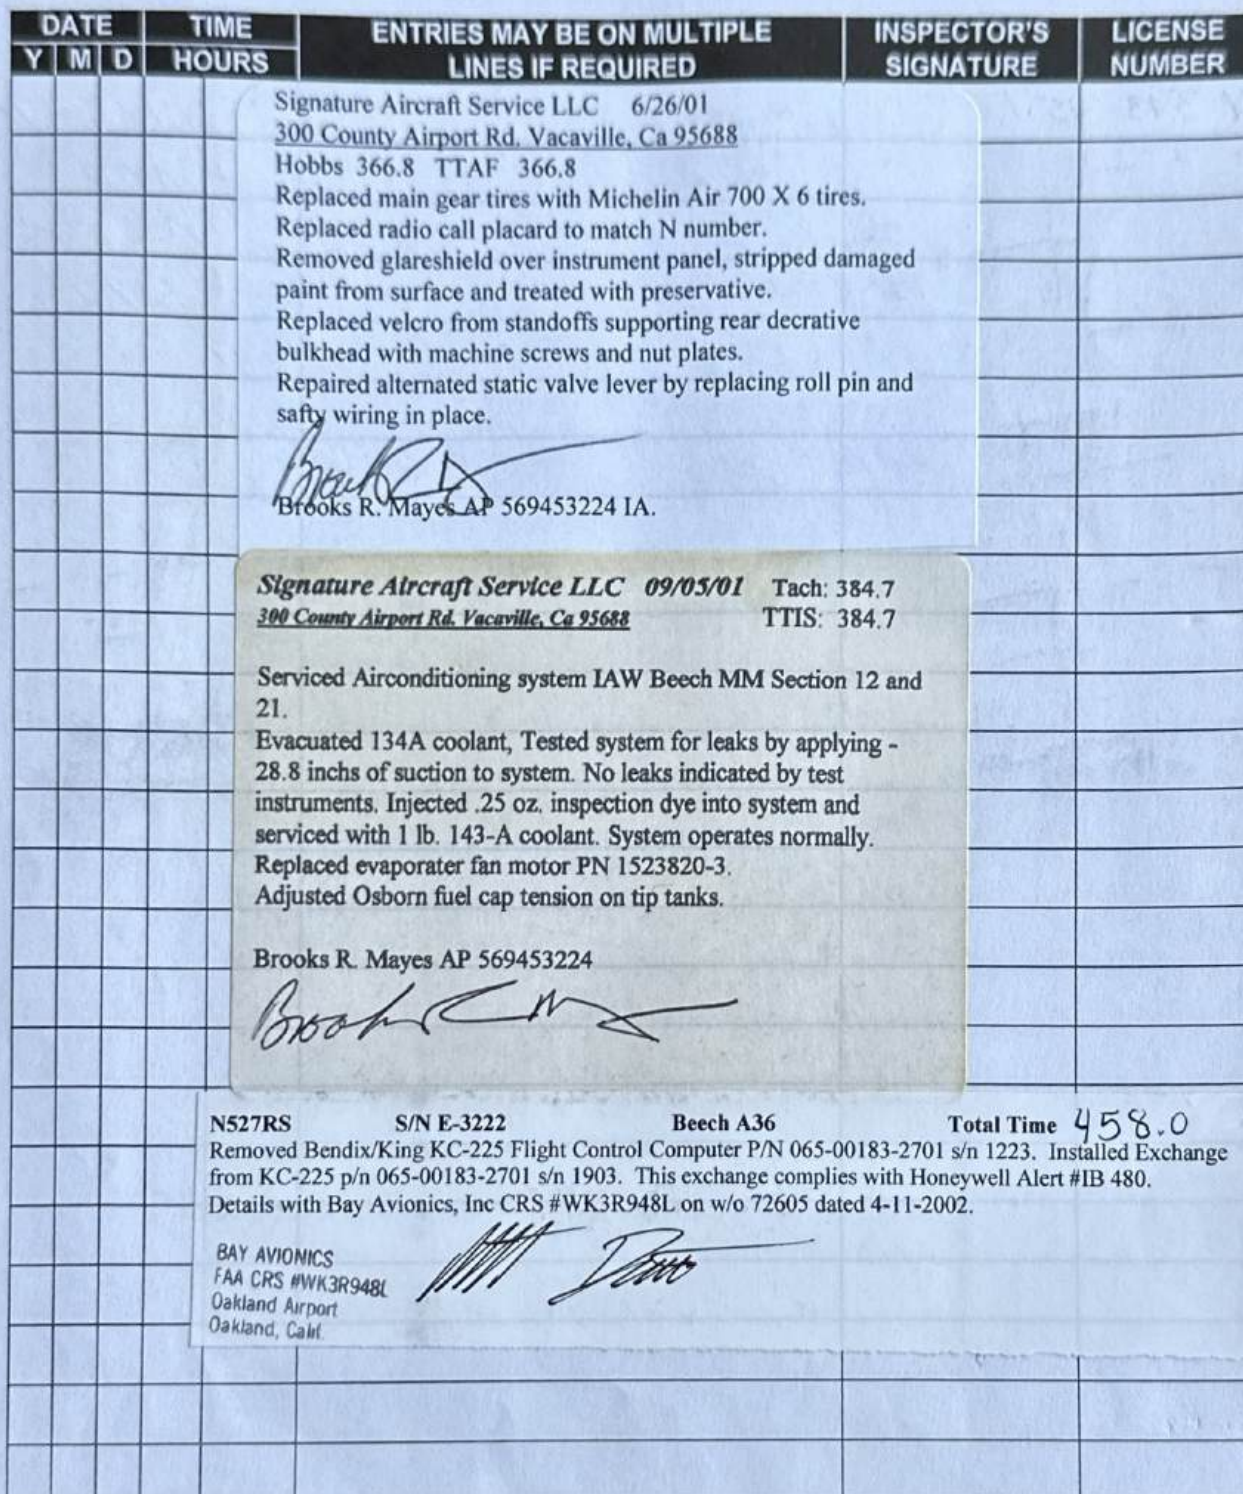 DATE TIME ENTRIES MAY BE ON MULTIPLE INSPECTOR'S LICENSE
Y M D HOURS LINES IF REQUIRED SIGNATURE NUMBER
Signature Aircraft Service LLC 6/26/01
300 County Airport Rd. Vacaville, Ca 95688
Hobbs 366.8 TTAF 366.8
Replaced main gear tires with Michelin Air 700 X 6 tires.
Replaced radio call placard to match N number.
Removed glareshield over instrument panel, stripped damaged
paint from surface and treated with preservative.
Replaced velcro from standoffs supporting rear decrative
bulkhead with machine screws and nut plates.
Repaired alternated static valve lever by replacing roll pin and
safty wiring in place.
Brooks R. Mayes AP 569453224 IA.
Signature Aircraft Service LLC 09/05/01 Tach: 384.7
300 County Airport Rd. Vacaville, Ca 95688 TTIS: 384.7
Serviced Airconditioning system IAW Beech MM Section 12 and
21.
Evacuated 134A coolant, Tested system for leaks by applying -
28.8 inchs of suction to system. No leaks indicated by test
instruments. Injected .25 oz. inspection dye into system and
serviced with 1 lb. 143-A coolant. System operates normally.
Replaced evaporater fan motor PN 1523820-3.
Adjusted Osborn fuel cap tension on tip tanks.
Brooks R. Mayes AP 569453224
N527RS S/N E-3222 Beech A36 Total Time 458.0
Removed Bendix/King KC-225 Flight Control Computer P/N 065-00183-2701 s/n 1223. Installed Exchange
from KC-225 p/n 065-00183-2701 s/n 1903. This exchange complies with Honeywell Alert #IB 480.
Details with Bay Avionics, Inc CRS #WK3R948L on w/o 72605 dated 4-11-2002.
BAY AVIONICS
FAA CRS #WK3R948L
Oakland Airport
Oakland, Calif.